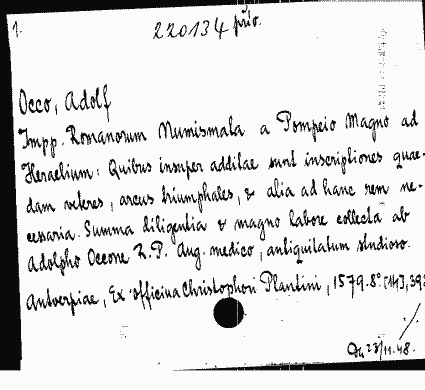 1.
220134 prio.
Occo, Adolf
Impp. Romanorum Numismata a Pompeio Magno ad
Heraclium: Quibus insuper additae sunt inscriptiones quae-
dam veteres, arcus triumphales, & alia ad hanc rem ne-
cessaria. Summa diligentia & magno labore collecta ab
Adolpho Occone R.P. Aug. medico, antiquitatum studioso.
Antverpiae, Ex officina Christophori Plantini, 1579. 8°. [14], 398
23/11.48.